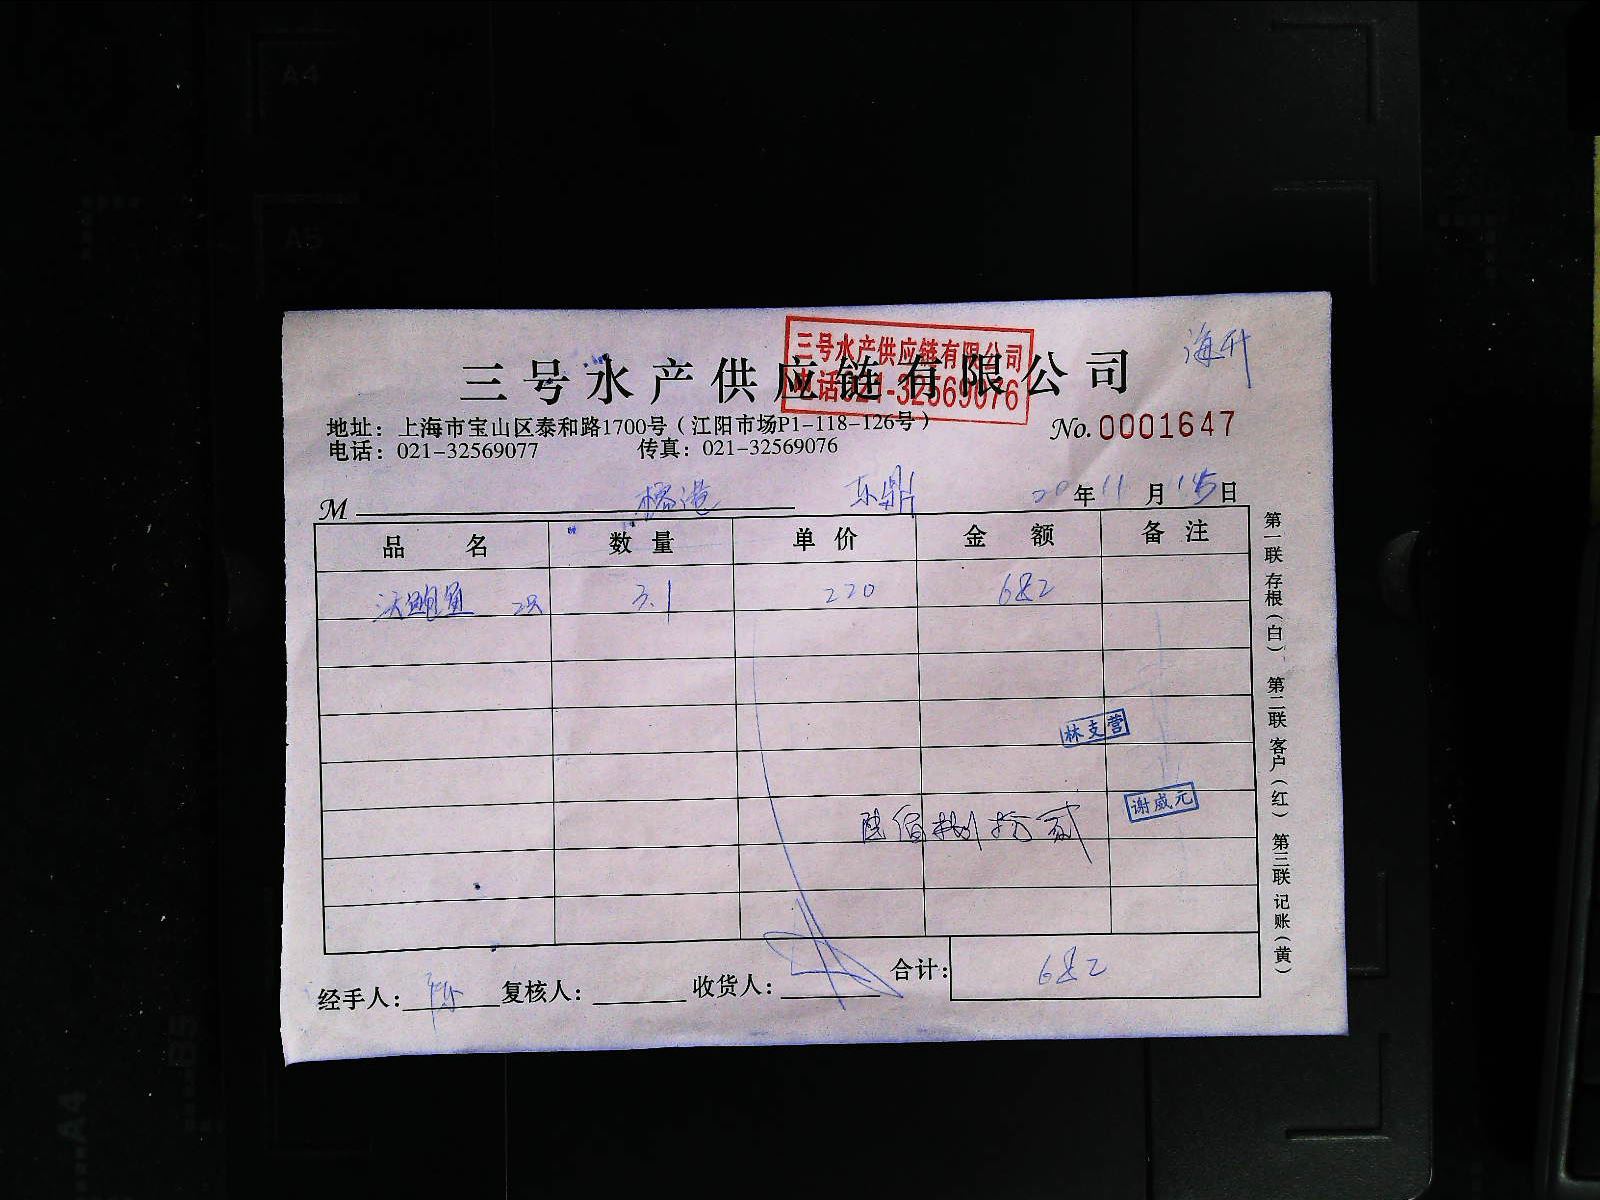 三号水产供应链有限公司
电话021-32569076
海升
三号水产供应链有限公司
地址：上海市宝山区泰和路1700号（江阳市场P1-118-126号）
No. 0001647
电话：021-32569077 传真：021-32569076
M 榕港 东鼎 20年11月15日
品名 数量 单价 金额 备注
鲍鱼 2只 3.1 220 682
林支营
谢威元
陆佰捌拾贰
合计：682
经手人： 复核人： 收货人：
第一联存根（白）、第二联客户（红）第三联记账（黄）